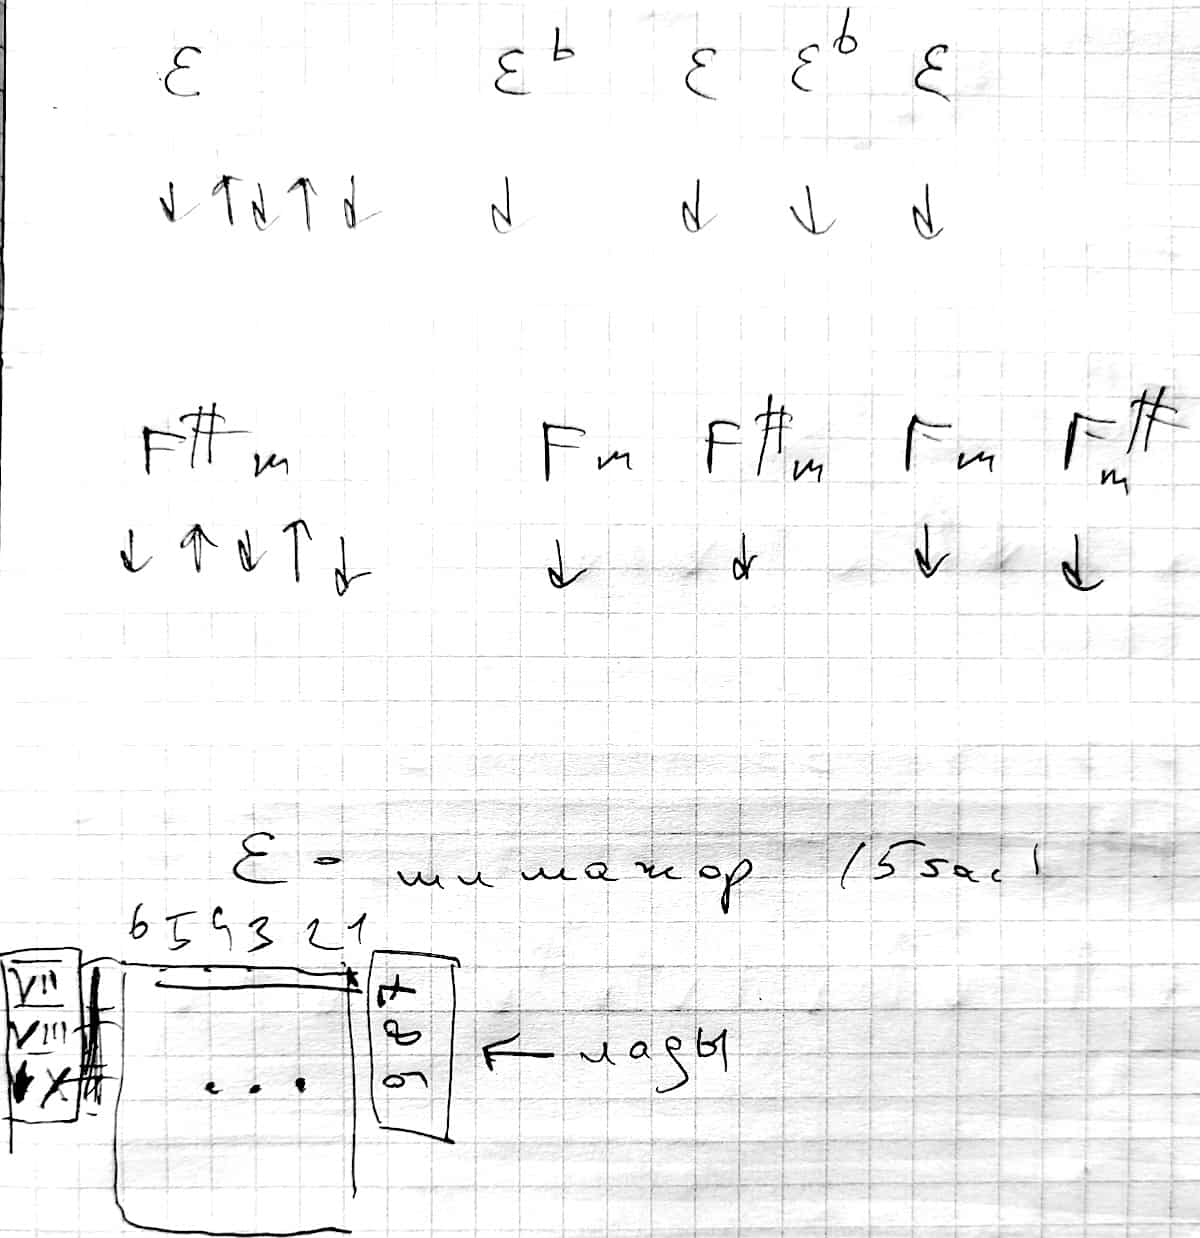 E E♭ E E♭ E
↓ ↑ ↓ ↑ ↓ ↓ ↓ ↓ ↓
F#m Fm F#m Fm F#m
↓ ↑ ↓ ↑ ↓ ↓ ↓ ↓ ↓
E - ми мажор (5 бас)
6 5 4 3 2 1
VII 7
VIII 8
X 9
← лады